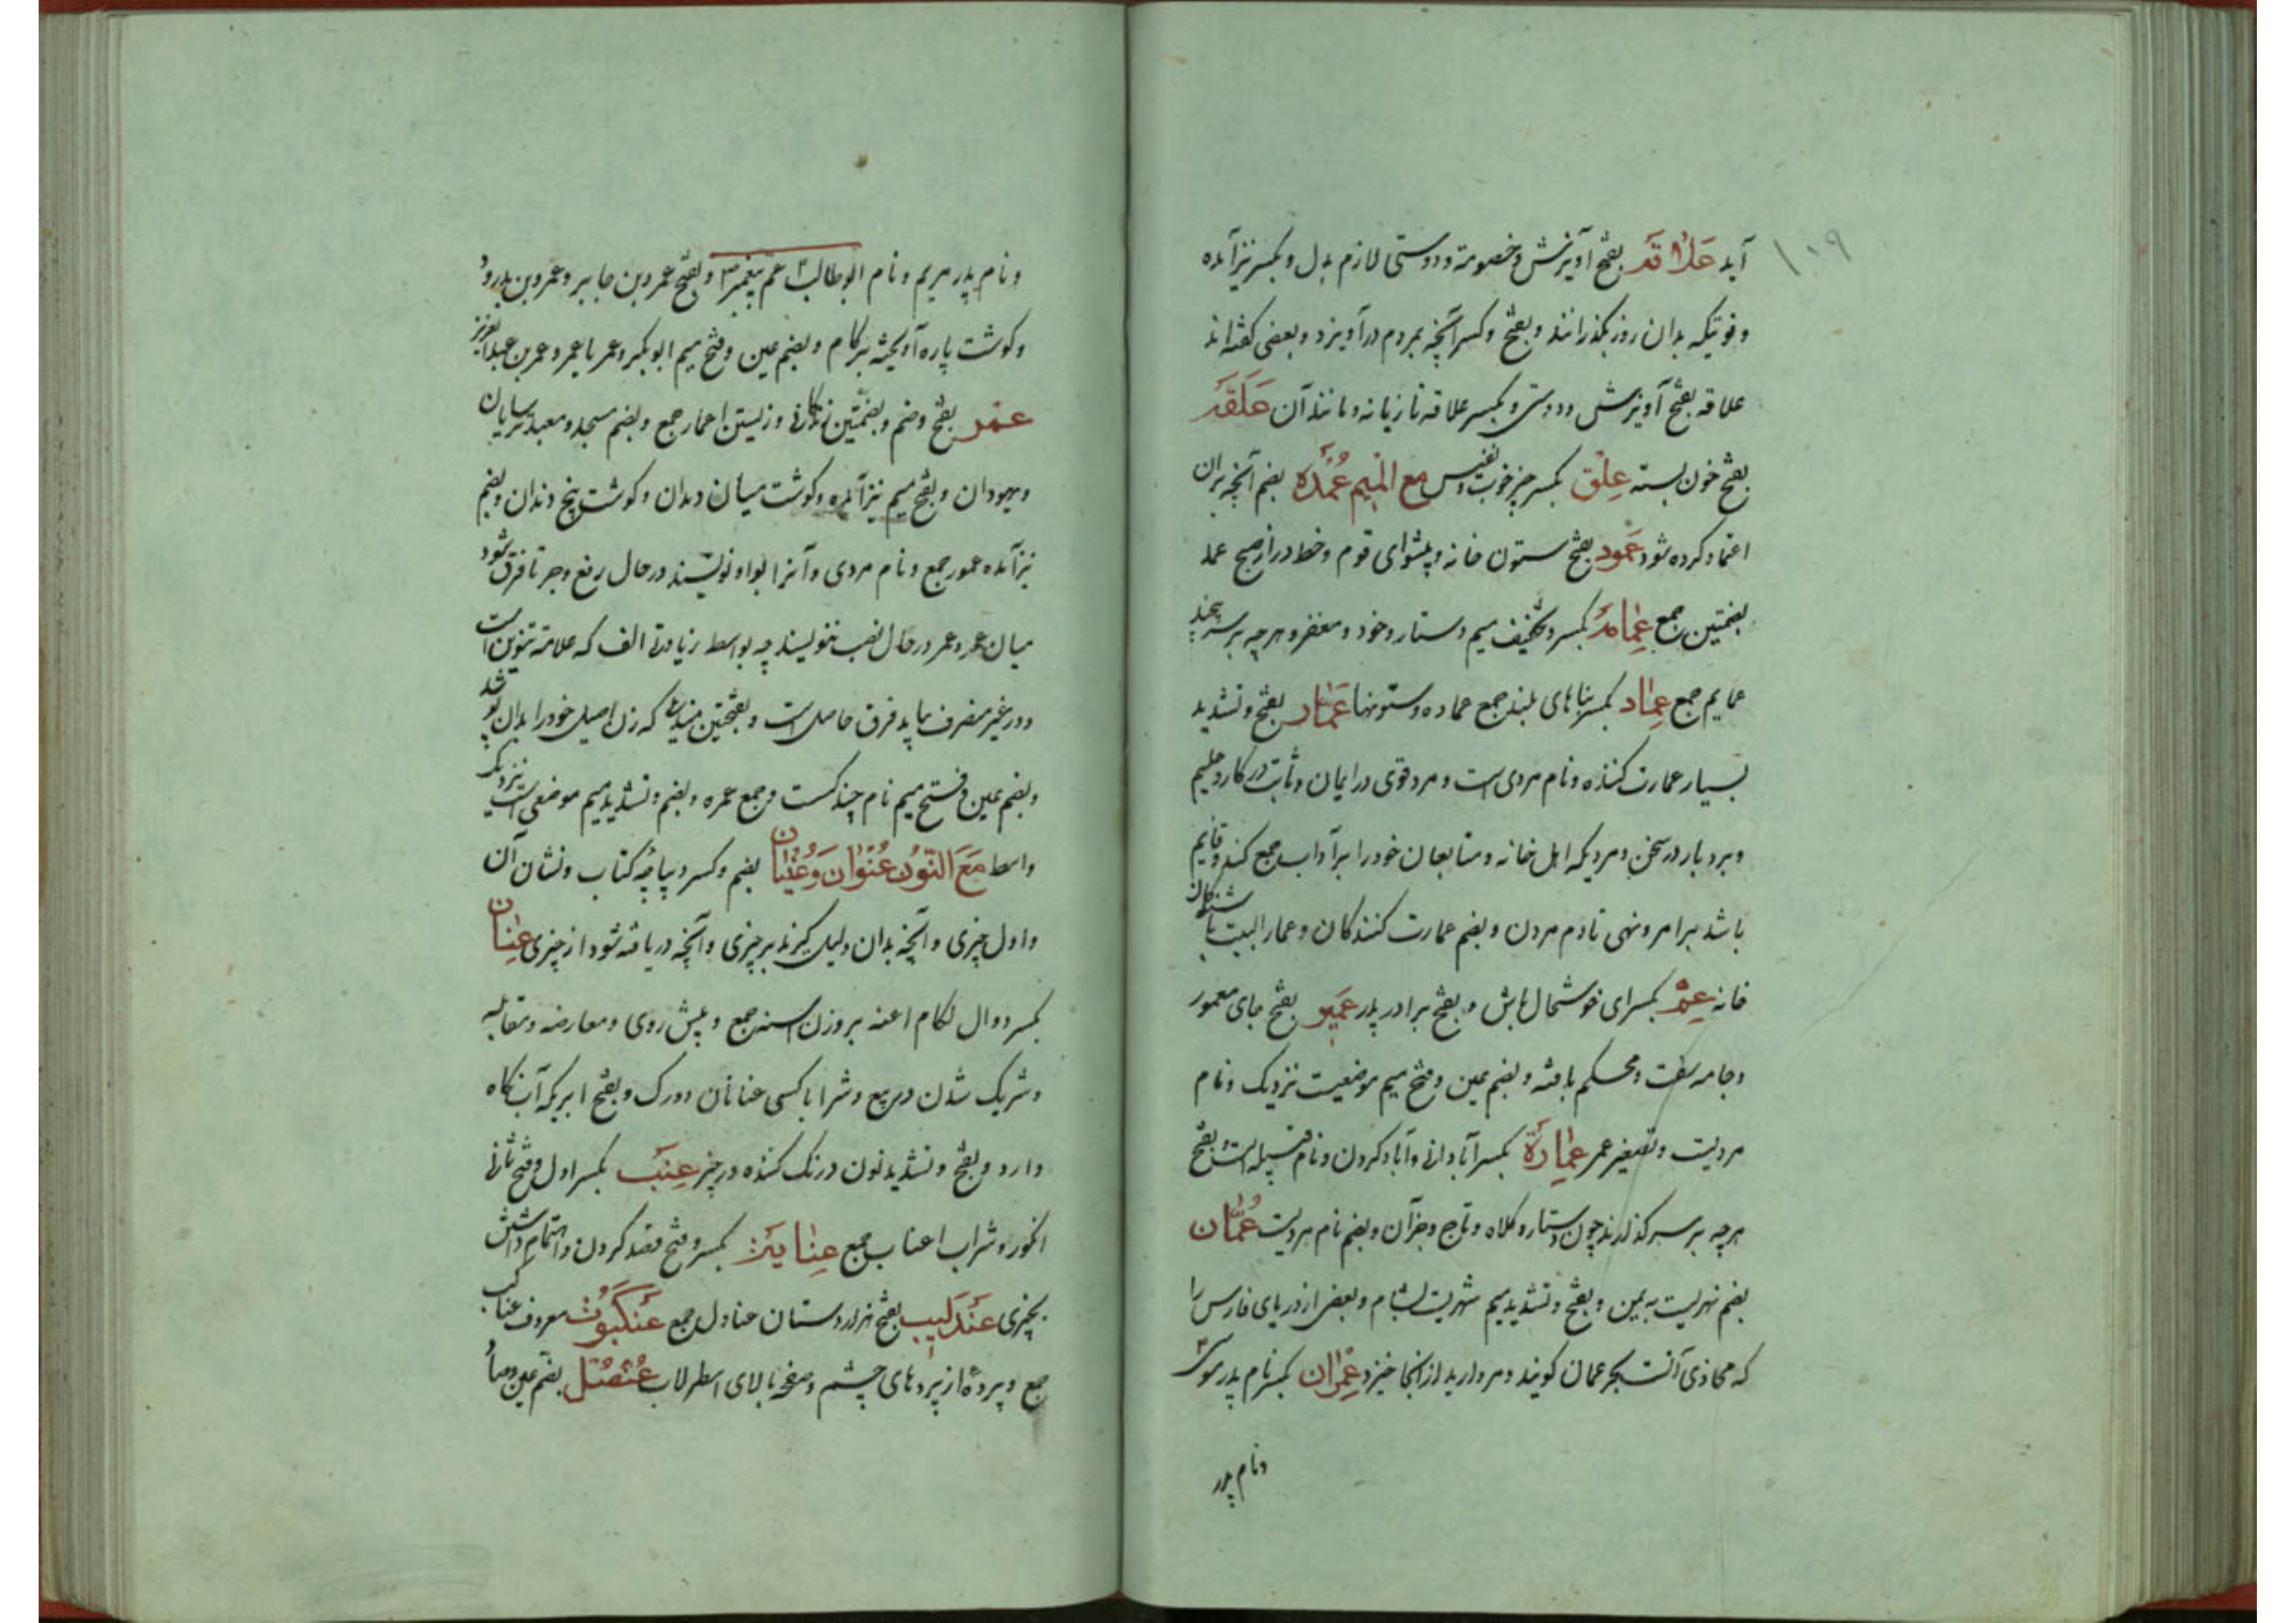 ۱۰۹
آید عَلاقَه بفتح آویزش و خصومة و دوستی لازم بدل و بکسر نیز آمده
و قوتیکه بدان روز بگذرانند و بفتح و کسر آنچه بمردم درآویزد و بعضی گفته‌اند
علاقه بفتح آویزش و دوستی و بکسر علاقه تازیانه و مانند آن عَلَقَه
بفتح خون بسته عِلْق بکسر چیز خوب و نفیس مع المیم عُمْدَه بضم آنچه بران
اعتماد کرده شود عَمُود بفتح ستون خانه و پیشوای قوم و خط دراز صبح عمد
بضمتین جمع عِمَامَه بکسر و تخفیف میم دستار و خود و مغفر و هر چه بر سر پیچند
عمایم جمع عِمَاد بکسر بناهای بلند جمع عماده و ستونها عَمَّار بفتح و تشدید
بسیار عمارت کننده و نام مردی است و مرد قوی در ایمان و ثابت در کار و حلیم
و بردبار در سخن و مردیکه اهل خانه و متابعان خود را برآداب جمع کند و قایم
باشد برامر و نهی تا دم مردن و بضم عمارت کنندکان و عمار البیت باشندکان
خانه عِمْ بکسر ای خوشحال باش و بفتح برادر پدر عَمِیر بفتح جای معمور
و جامه سفت و محکم بافته و بضم عین و فتح میم موضعیت نزدیک و نام
مردیت و تصغیر عمر عِمَارَة بکسر آبادانی و آباد کردن و نام قبیله است و بفتح
هر چه بر سر کذارند چون دستار و کلاه و تاج و جزآن و بضم نام مردیت عُمَّان
بضم نهریست به یمن و بفتح و تشدید میم شهریت بشام و بعضی از دریای فارس را
که محاذی آنست بحر عمان کویند و مروارید از آنجا خیزد عِمْرَان بکسر نام پدر موسی
و نام پدر
و نام پدر مریم و نام ابوطالب عم پیغمبر و بفتح عمرو بن جابر و عمرو بن بدر و
و کوشت پاره آویخته بر کام و بضم عین و فتح میم ابوبکر و عمر یا عمر و عمر بن عبدالعزیز
عمر بفتح و ضم و بضمتین زندکانی و زیستن اعمار جمع و بضم مسجد و معبد ترسایان
و یهودان و بفتح میم نیز آمده و کوشت میان دندان و کوشت بیخ دندان و بضم
نیز آمده عمور جمع و نام مردی و آنرا بواو نویسند در حال رفع و جر تا فرق شود
میان عمر و عمرو در حال نصب ننویسند چه بواسطه زیادتی الف که علامة تنوین است
و در غیر منصرف نیاید فرق حاصل است و بفتحتین مندیلی که زن اصیل خود را بدان پوشد
و بضم عین و فتح میم نام چند کست و جمع عمره و بضم و تشدید میم موضعی است نزدیک
واسط مَعَ النُّون عُنْوَان وَعُنْیَان بضم و کسر دیباچه کتاب و نشان آن
و اول چیزی و آنچه بدان دلیل کیرند بر چیزی و آنچه دریافته شود از چیزی عِنَان
بکسر دوال لکام اعنه بر وزن اسنه جمع و پیش روی و معارضه و مقابله
و شریک شدن در بیع و شرا با کسی عنانان دو رک و بفتح ابریکه آب نکاه
دارد و بفتح و تشدید نون درنک کننده در چیز عِنَب بکسر اول و فتح ثانی
انکور و شراب اعناب جمع عِنَایَة بکسر و فتح قصد کردن و اهتمام داشتن
بچیزی عَنْدَلِیب بفتح هزار دستان عنادل جمع عَنْکَبُوت معروف عناکب
جمع و پرده از پردهای چشم و صفحه بالای اسطرلاب عُنْصُل بضم عین و صاد